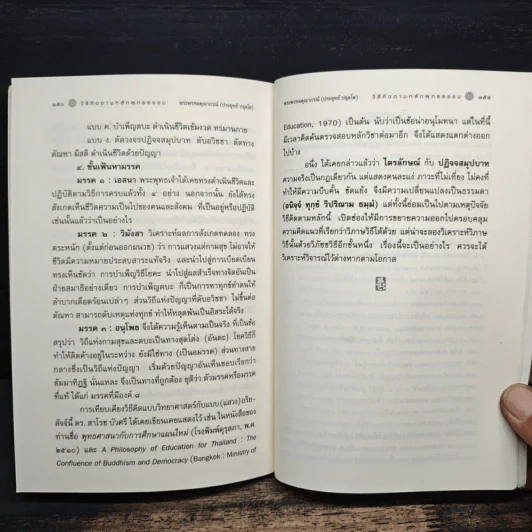 ๑๕๐ วิธีคิดตามหลักพุทธธรรม พระพรหมคุณาภรณ์ (ประยุทธ์ ปยุตฺโต)
แบบ ค. บำเพ็ญตบะ ดำเนินชีวิตเข้มงวด ทรมานกาย
แบบ ง. ตัดวงจรปฏิจจสมุปบาท ดับอวิชชา ตัดทาง
ตัณหา มีสติ ดำเนินชีวิตด้วยปัญญา
๔. ขั้นเฟ้นหามรรค
มรรค ๑ : เอสนา พระพุทธเจ้าได้เคยทรงดำเนินชีวิตและ
ปฏิบัติตามวิธีการครบแล้วทั้ง ๔ อย่าง นอกจากนั้น ยังได้ทรง
สังเกตเห็นชีวิตความเป็นไปของตนและสังคม ที่เป็นอยู่หรือปฏิบัติ
เช่นนั้นแล้วว่าเป็นอย่างไร
มรรค ๒ : วิมังสา วิเคราะห์ผลการสังเกตทดลอง ทรง
ตระหนัก (ตั้งแต่ก่อนออกผนวช) ว่า การแสวงแต่กามสุข ไม่อาจให้
ชีวิตมีความหมายประสบสาระแท้จริง และนำไปสู่การเบียดเบียน
ทรงเห็นชัดว่า การบำเพ็ญวิธีโยคะ นำไปสู่ผลสำเร็จทางจิตอันเป็น
ฝ่ายสมาธิอย่างเดียว การบำเพ็ญตบะ ก็เป็นการหาทุกข์ทำตนให้
ลำบากเดือดร้อนเปล่าๆ ส่วนวิถีแห่งปัญญาที่ดับอวิชชา ไม่ขึ้นต่อ
ตัณหา สามารถดับเหตุแห่งทุกข์ ทำให้หลุดพ้นเป็นอิสระได้จริง
มรรค ๓ : อนุโพธ จึงได้ความรู้เห็นตามเป็นจริง ที่เป็นข้อ
สรุปว่า วิถีแห่งกามสุขและตบะเป็นทางสุดโต่ง (อันตะ) โยควิธีก็
ทำให้ติดค้างอยู่ในระหว่าง ยังมิใช่ทาง (เป็นอมรรค) ส่วนทางสาย
กลางซึ่งเป็นวิถีแห่งปัญญา เริ่มด้วยปัญญาอันเห็นชอบเรียกว่า
สัมมาทิฏฐิ นั่นแหละ จึงเป็นทางที่ถูกต้อง ยุติว่า ตัวมรรคหรือมรรค
ที่แท้ ได้แก่ มรรคที่มีองค์ ๘
การเทียบเคียงวิธีคิดแบบวิทยาศาสตร์กับแบบ(แสวง)อริย-
สัจจ์นี้ ดร. สาโรช บัวศรี ได้เคยเขียนเคยแสดงไว้ เช่น ในหนังสือของ
ท่านชื่อ พุทธศาสนากับการศึกษาแผนใหม่ (โรงพิมพ์คุรุสภา, พ.ศ.
๒๕๑๐) และ A Philosophy of Education for Thailand : The
Confluence of Buddhism and Democracy (Bangkok : Ministry of
พระพรหมคุณาภรณ์ (ประยุทธ์ ปยุตฺโต) วิธีคิดตามหลักพุทธธรรม ๑๕๑
Education, 1970) เป็นต้น นับว่าเป็นข้อน่าอนุโมทนา แต่ในที่นี้
มีเวลาคิดค้นตรวจสอบหลักวิชาต่อมาอีก จึงได้แสดงแตกต่างออก
ไปบ้าง
อนึ่ง ได้เคยกล่าวแล้วว่า ไตรลักษณ์ กับ ปฏิจจสมุปบาท
ความจริงเป็นกฎเดียวกัน แต่แสดงคนละแง่ ภาวะที่ไม่เที่ยง ไม่คงที่
ทำให้มีความบีบคั้น ขัดแย้ง จึงมีความเปลี่ยนแปลงเป็นธรรมดา
(อนิจฺจํ ทุกฺขํ วิปริณาม ธมฺมํ) แต่ทั้งนี้ย่อมเป็นไปตามเหตุปัจจัย
วิธีคิดตามหลักนี้ เปิดช่องให้มีการขยายความออกไปครอบคลุม
ความคิดแนวที่เรียกว่าวิภาษวิธีได้ด้วย แต่น่าจะลองวิเคราะห์วิภาษ
วิธีนั้นด้วยวิภัชชวิธีอีกชั้นหนึ่ง เรื่องนี้จะเป็นอย่างไร ควรจะได้
วิเคราะห์วิจารณ์ไว้ต่างหากตามโอกาส